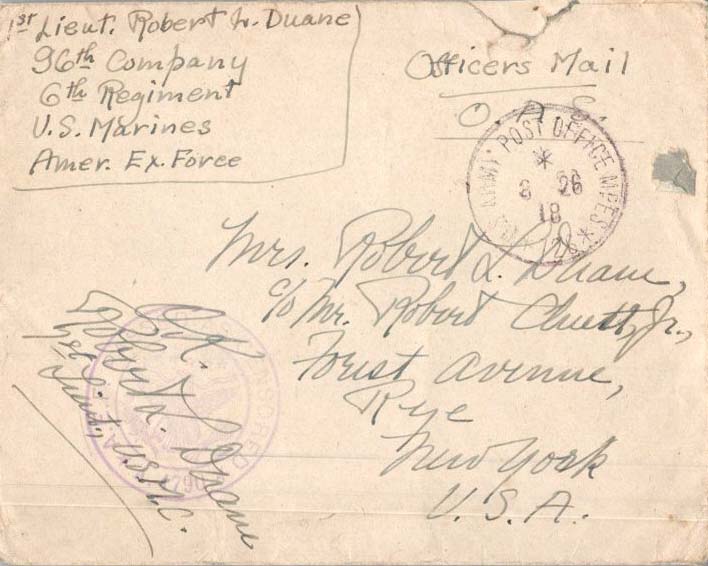 1st Lieut. Robert L. Duane
96th Company
6th Regiment
U.S. Marines
Amer. Ex. Force
Officers Mail
O. A. S.
ARMY POST OFFICE MPES
26
18
Mrs. Robert L. Duane,
c/o Mr. Robert Cluett, Jr.,
Forest Avenue,
Rye
New York
U. S. A.
O.K.
Robert L. Duane
1st Lieut., U.S.M.C.
CENSORED
A.E.F.